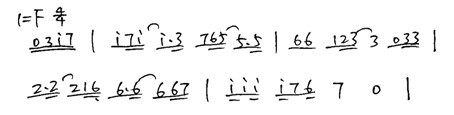 1=F 4/4
0 3 i 7 | i 7 i i·3 7 6 5 5·5 | 6 6 1 2 3 3 0 3 3 |
2·2 2 1 6 6·6 6 6 7 | i i i i 7 6 7 0 |